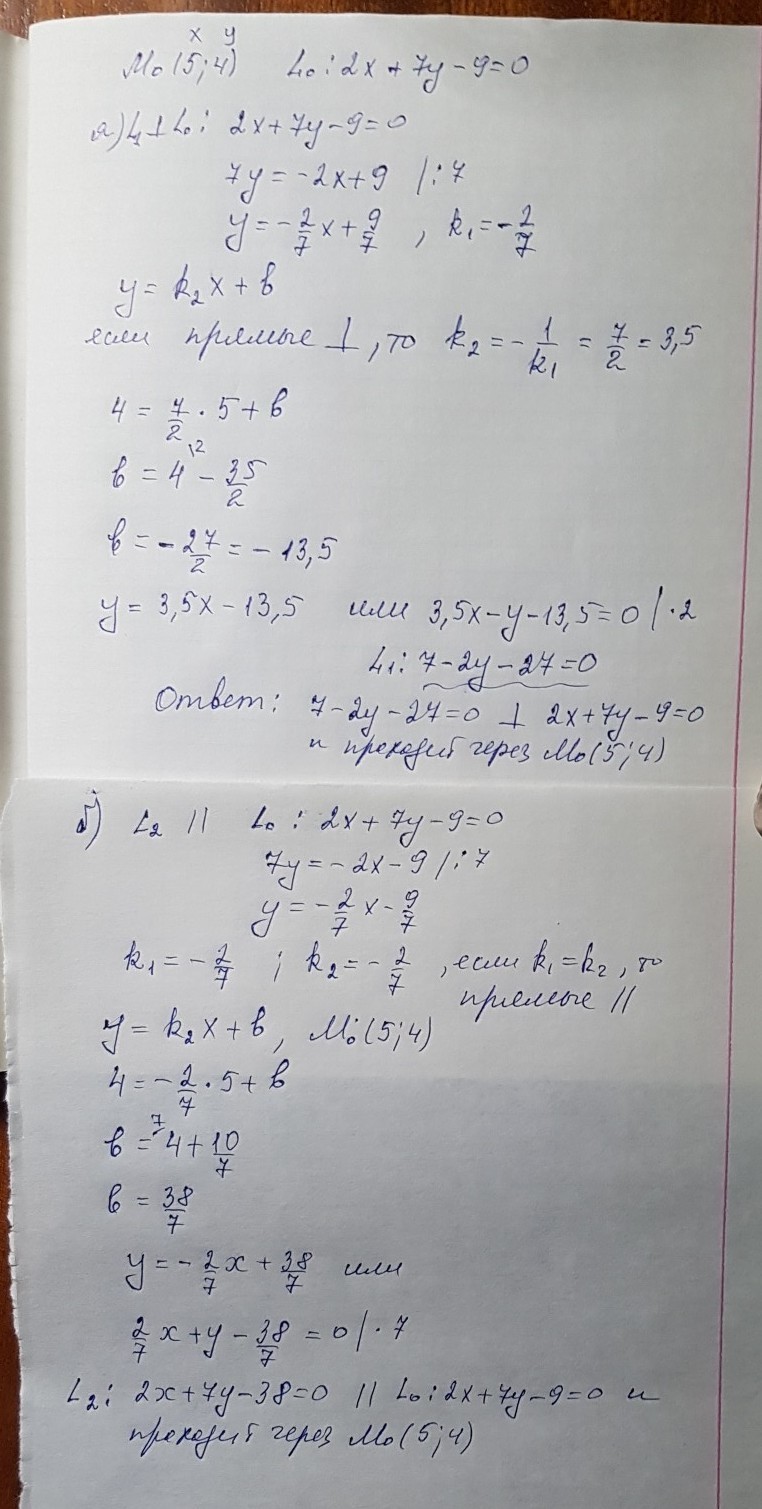 x y
M₀(5;4) L₀: 2x + 7y - 9 = 0
а) L₁ ⊥ L₀: 2x + 7y - 9 = 0
7y = -2x + 9 /:7
y = -2/7 x + 9/7 , k₁ = -2/7
y = k₂x + b
если прямые ⊥, то k₂ = -1/k₁ = 7/2 = 3,5
4 = 7/2 · 5 + b
b = 4\2 - 35/2
b = -27/2 = -13,5
y = 3,5x - 13,5 или 3,5x - y - 13,5 = 0 /·2
L₁: 7 - 2y - 27 = 0
Ответ: 7 - 2y - 27 = 0 ⊥ 2x + 7y - 9 = 0
и проходит через M₀(5;4)
б) L₂ // L₀: 2x + 7y - 9 = 0
7y = -2x - 9 /:7
y = -2/7 x - 9/7
k₁ = -2/7 ; k₂ = -2/7 , если k₁ = k₂, то
прямые //
y = k₂x + b, M₀(5;4)
4 = -2/7 · 5 + b
b = 7/4 + 10/7
b = 38/7
y = -2/7 x + 38/7 или
2/7 x + y - 38/7 = 0 /·7
L₂: 2x + 7y - 38 = 0 // L₀: 2x + 7y - 9 = 0 и
проходит через M₀(5;4)